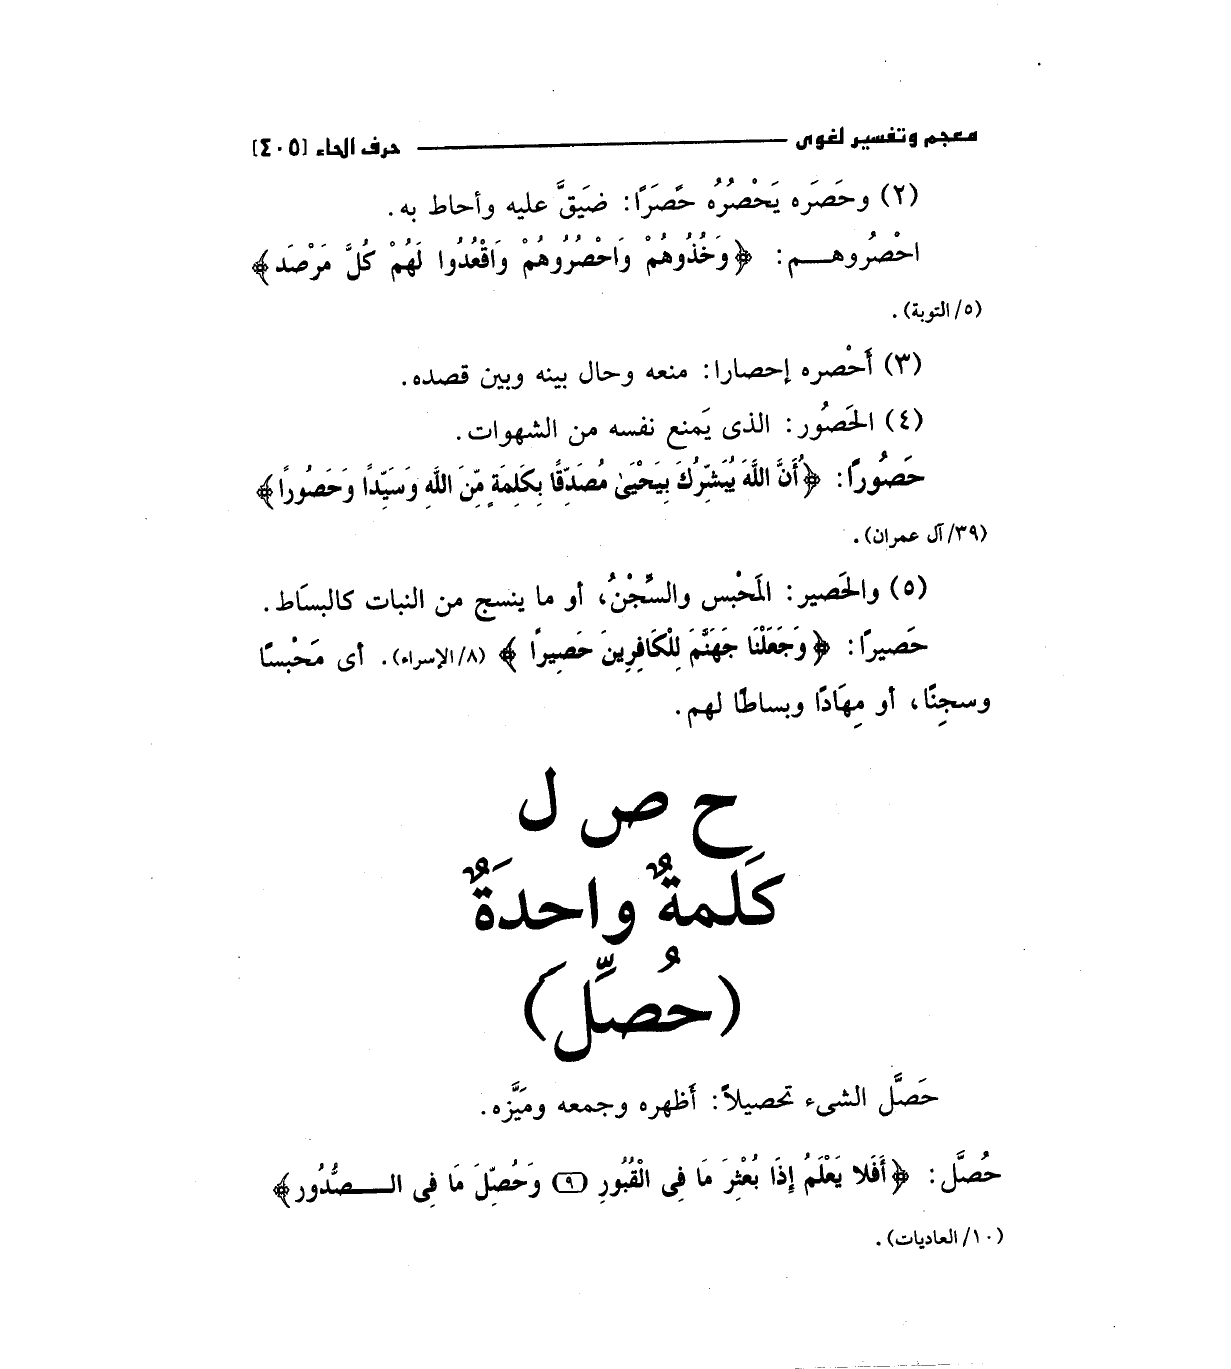 معجم وتفسير لغوى حرف الحاء [٤٠٥]
(٢) وحَصَره يَحْصُرُه حَصَرًا: ضَيَّقَ عليه وأحاط به.
احْصُروهـم: ﴿وَخُذُوهُمْ وَاحْصُرُوهُمْ وَاقْعُدُوا لَهُمْ كُلَّ مَرْصَد﴾
(٥/ التوبة).
(٣) أَحْصره إحصارا: منعه وحال بينه وبين قصده.
(٤) الحَصُور: الذى يَمنع نفسه من الشهوات.
حَصُورًا: ﴿أَنَّ اللَّهَ يُبَشِّرُكَ بِيَحْيَىٰ مُصَدِّقًا بِكَلِمَةٍ مِّنَ اللَّهِ وَسَيِّدًا وَحَصُورًا﴾
(٣٩/ آل عمران).
(٥) والحَصير: المَحْبس والسِّجْنُ، أو ما ينسج من النبات كالبسَاط.
حَصيرًا: ﴿وَجَعَلْنَا جَهَنَّمَ لِلْكَافِرِينَ حَصِيرًا﴾ (٨/ الإسراء). أى مَحْبسًا
وسجنًا، أو مِهَادًا وبساطًا لهم.
ح ص ل
كَلمةٌ واحدَةٌ
(حُصِّلَ)
حَصَّل الشىء تحصيلاً: أظهره وجمعه ومَيَّزه.
حُصَّل: ﴿أَفَلا يَعْلَمُ إِذَا بُعْثِرَ مَا فِي الْقُبُورِ (٩) وَحُصِّلَ مَا فِى الـصُّدُور﴾
(١٠/ العاديات).